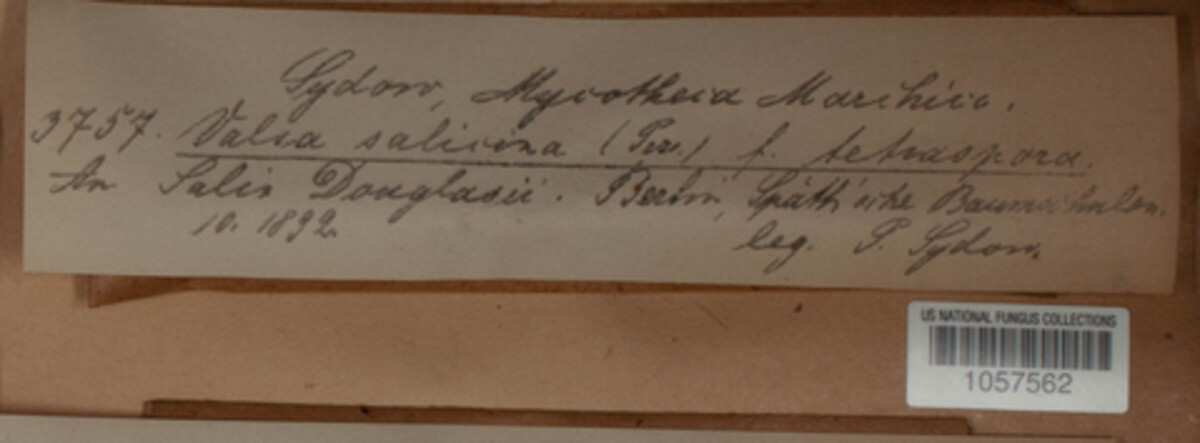 Sydow, Mycotheca Marchica.
3757. Valsa salicina (Pers.) f. tetraspora.
An Salix Douglasii. Berlin, Späth'sche Baumschulen.
10. 1892.
leg. P. Sydow.
US NATIONAL FUNGUS COLLECTIONS
1057562